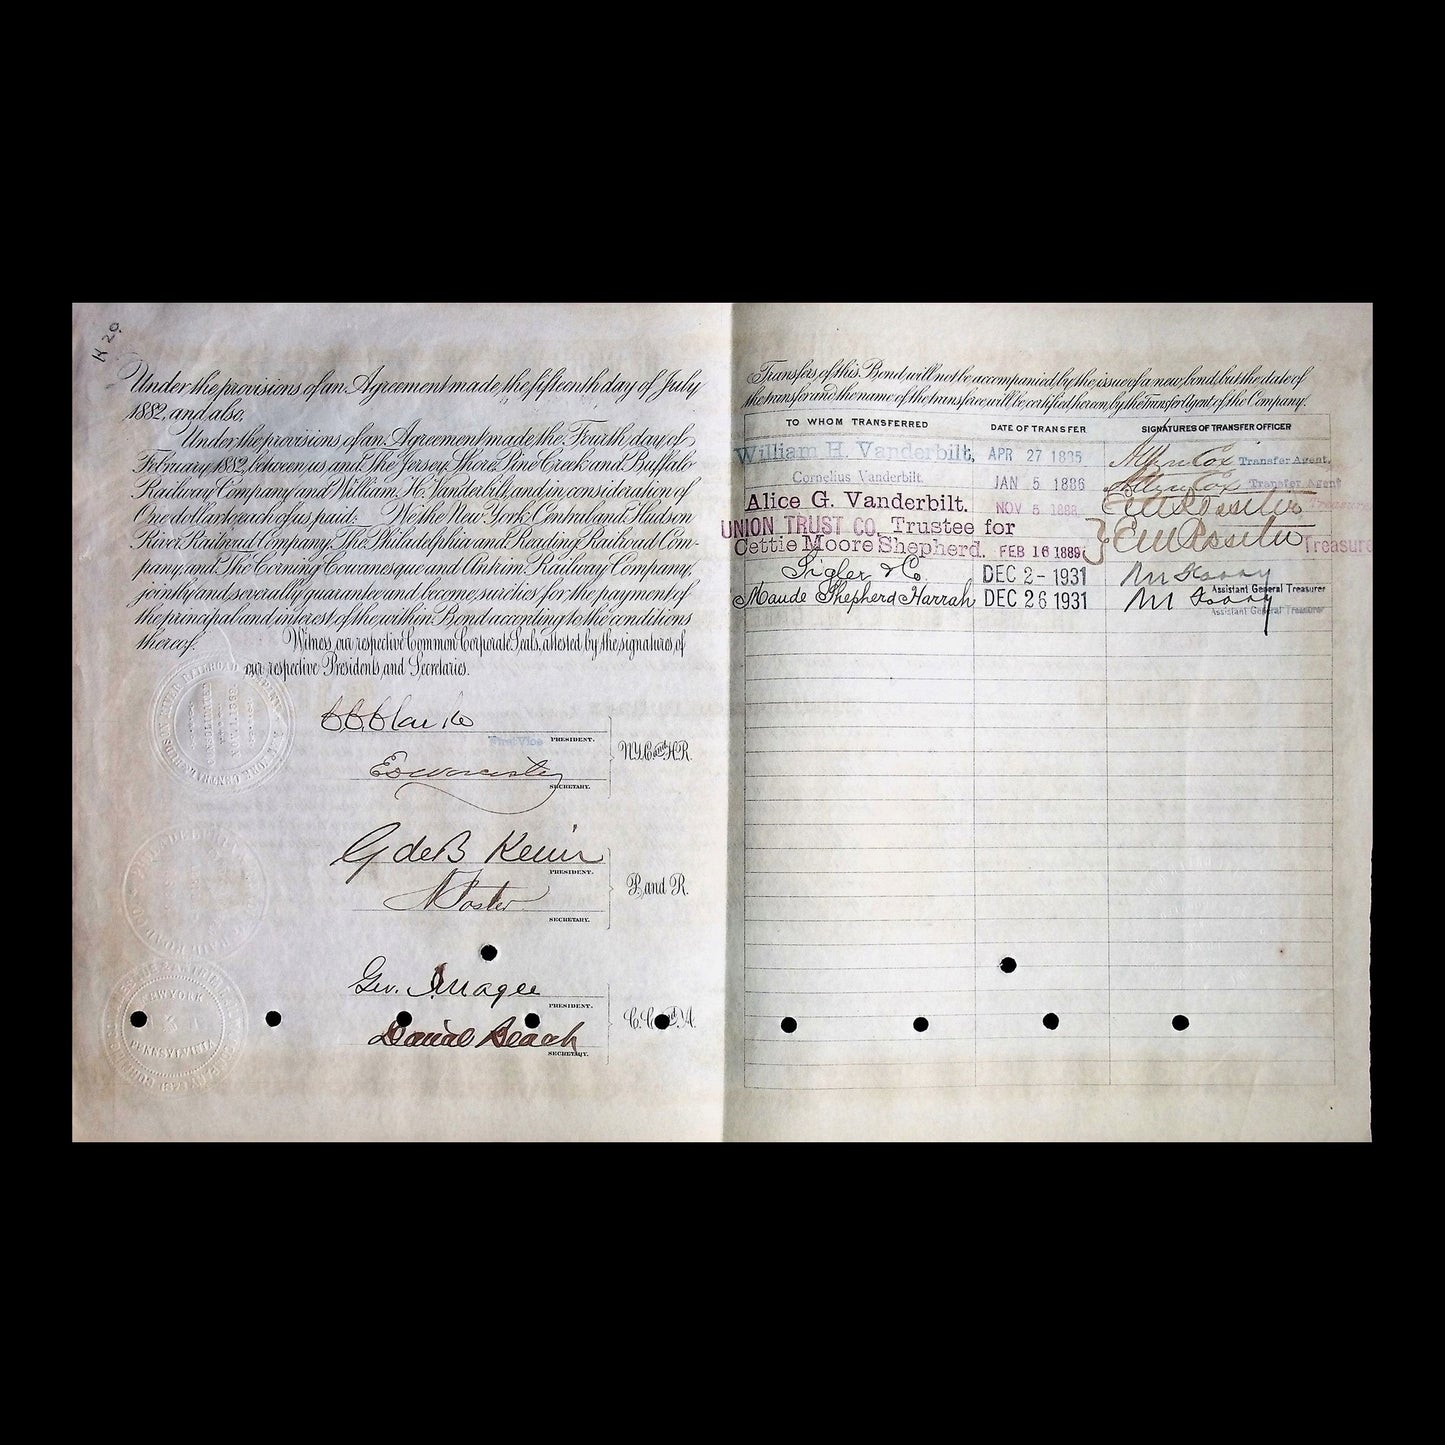 K 20.
Under the provisions of an Agreement made the fifteenth day of July
1882, and also,
Under the provisions of an Agreement made the Fourth day of
February 1882, between us and The Jersey Shore Pine Creek and Buffalo
Railway Company and William H. Vanderbilt, and in consideration of
One dollar to each of us paid: We the New York Central and Hudson
River Railroad Company, The Philadelphia and Reading Railroad Com-
pany, and The Corning Cowanesque and Antrim Railway Company,
jointly and severally guarantee and become sureties for the payment of
the principal and interest of the within Bond according to the conditions
thereof.
Witness, our respective Common Corporate Seals, attested by the signatures of
our respective Presidents and Secretaries.
First Vice PRESIDENT.
E D Worcester
SECRETARY.
N.Y.C. and H.R.
G de B Keim
PRESIDENT.
SECRETARY.
P. and R.
Geo. J Magee
PRESIDENT.
Daniel Beach
SECRETARY.
C.C. and A.
NEW YORK
PENNSYLVANIA
Transfers of this Bond will not be accompanied by the issue of a new bond, but the date of
the transfer and the name of the transferee, will be certified hereon, by the Transfer Agent of the Company.
TO WHOM TRANSFERRED DATE OF TRANSFER SIGNATURES OF TRANSFER OFFICER
William H. Vanderbilt, APR 27 1885 Allyn Cox Transfer Agent.
Cornelius Vanderbilt. JAN 5 1886 Allyn Cox Transfer Agent
Alice G. Vanderbilt. NOV 5 1888 E V W Rossiter Treasurer
UNION TRUST CO. Trustee for
Cettie Moore Shepherd. FEB 16 1889 E V W Rossiter Treasure
Sigler & Co. DEC 2 - 1931
Assistant General Treasurer
Maude Shepherd Harrah DEC 26 1931
Assistant General Treasurer